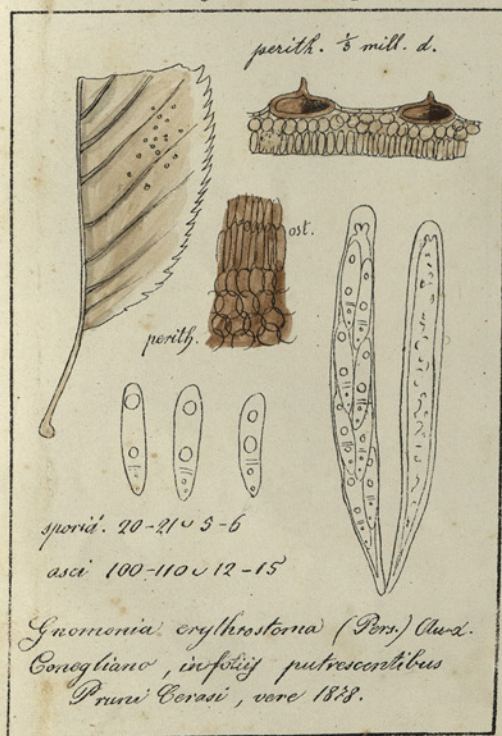 perith. ⅓ mill. d.
ost.
perith.
sporid. 20-21 ᴗ 5-6
asci 100-110 ᴗ 12-15
Gnomonia erythrostoma (Pers.) Au-d.
Conegliano, in foliis putrescentibus
Pruni Cerasi, vere 1878.